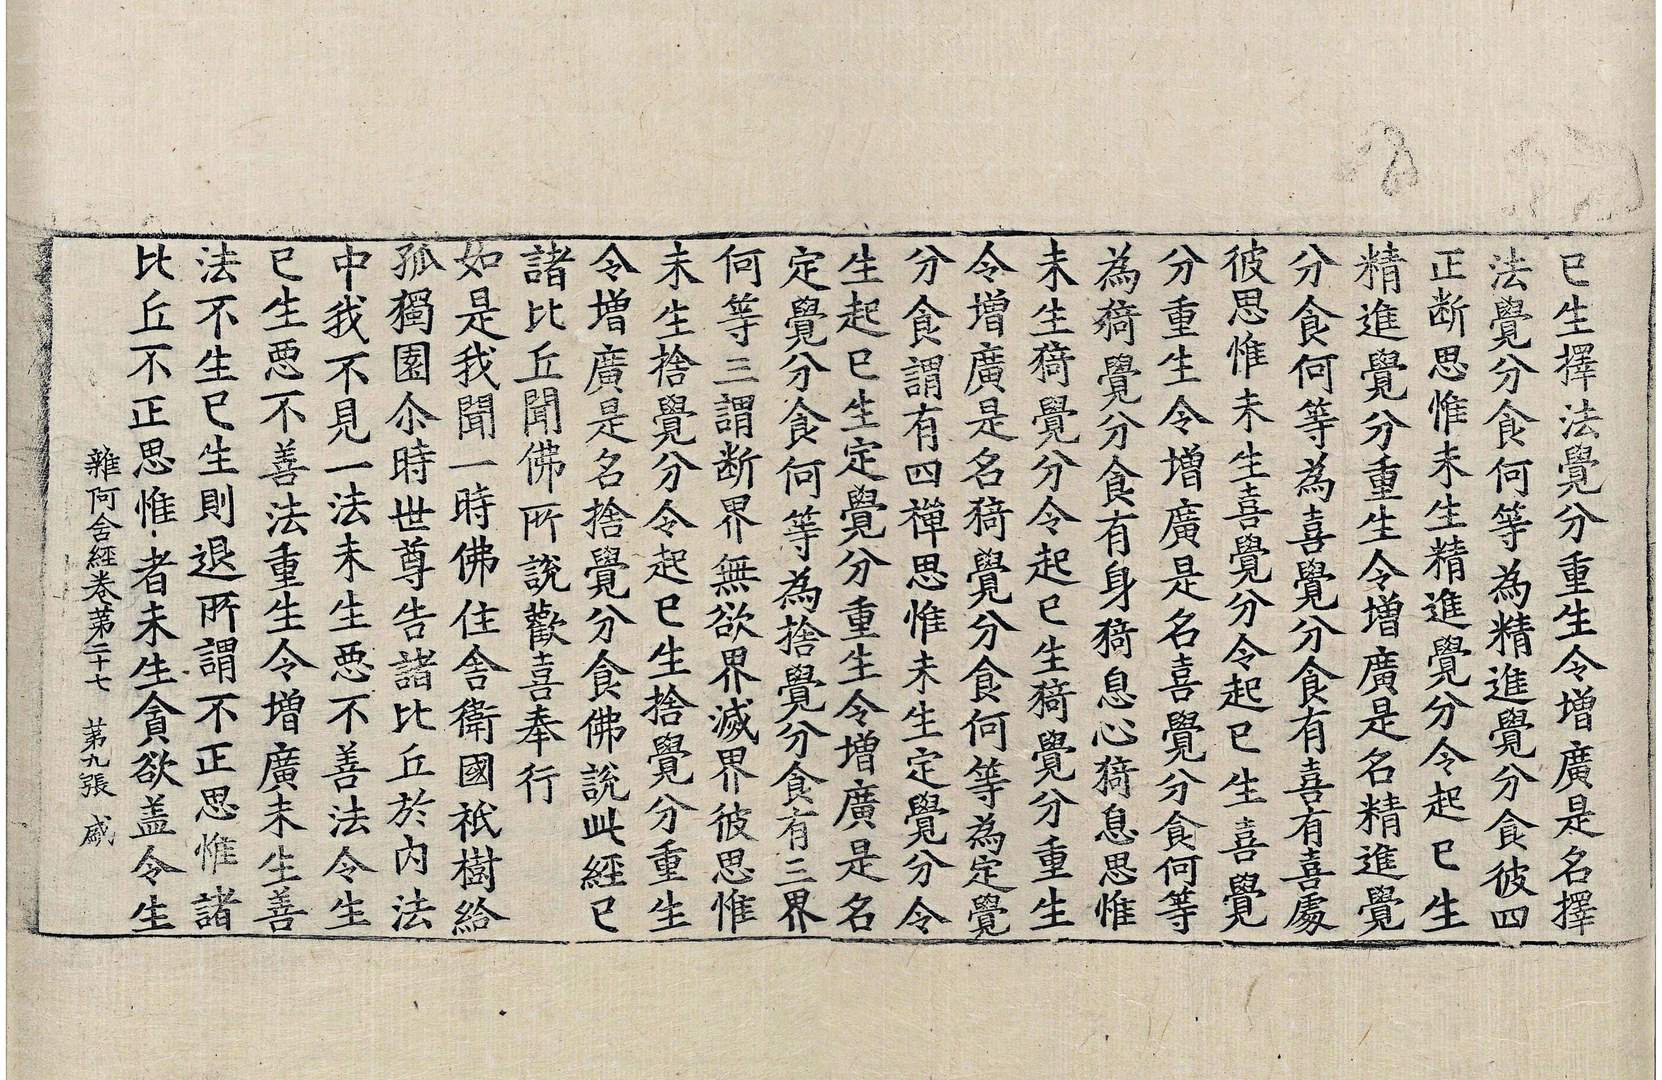 已生擇法覺分重生令增廣是名擇
法覺分食何等為精進覺分食彼四
正断思惟未生精進覺分令起已生
精進覺分重生令增廣是名精進覺
分食何等為喜覺分食有喜有喜處
彼思惟未生喜覺分令起已生喜覺
分重生令增廣是名喜覺分食何等
為猗覺分食有身猗息心猗息思惟
未生猗覺分令起已生猗覺分重生
令增廣是名猗覺分食何等為定覺
分食謂有四禪思惟未生定覺分令
生起已生定覺分重生令增廣是名
定覺分食何等為捨覺分食有三界
何等三謂断界無欲界滅界彼思惟
未生捨覺分令起已生捨覺分重生
令增廣是名捨覺分食佛說此經已
諸比丘聞佛所說歡喜奉行
如是我聞一時佛住舍衛國祇樹給
孤獨園尒時世尊告諸比丘於內法
中我不見一法未生惡不善法令生
已生惡不善法重生令增廣未生善
法不生已生則退所謂不正思惟諸
比丘不正思惟者未生貪欲盖令生
雜阿含經卷第二十七　第九張　盛